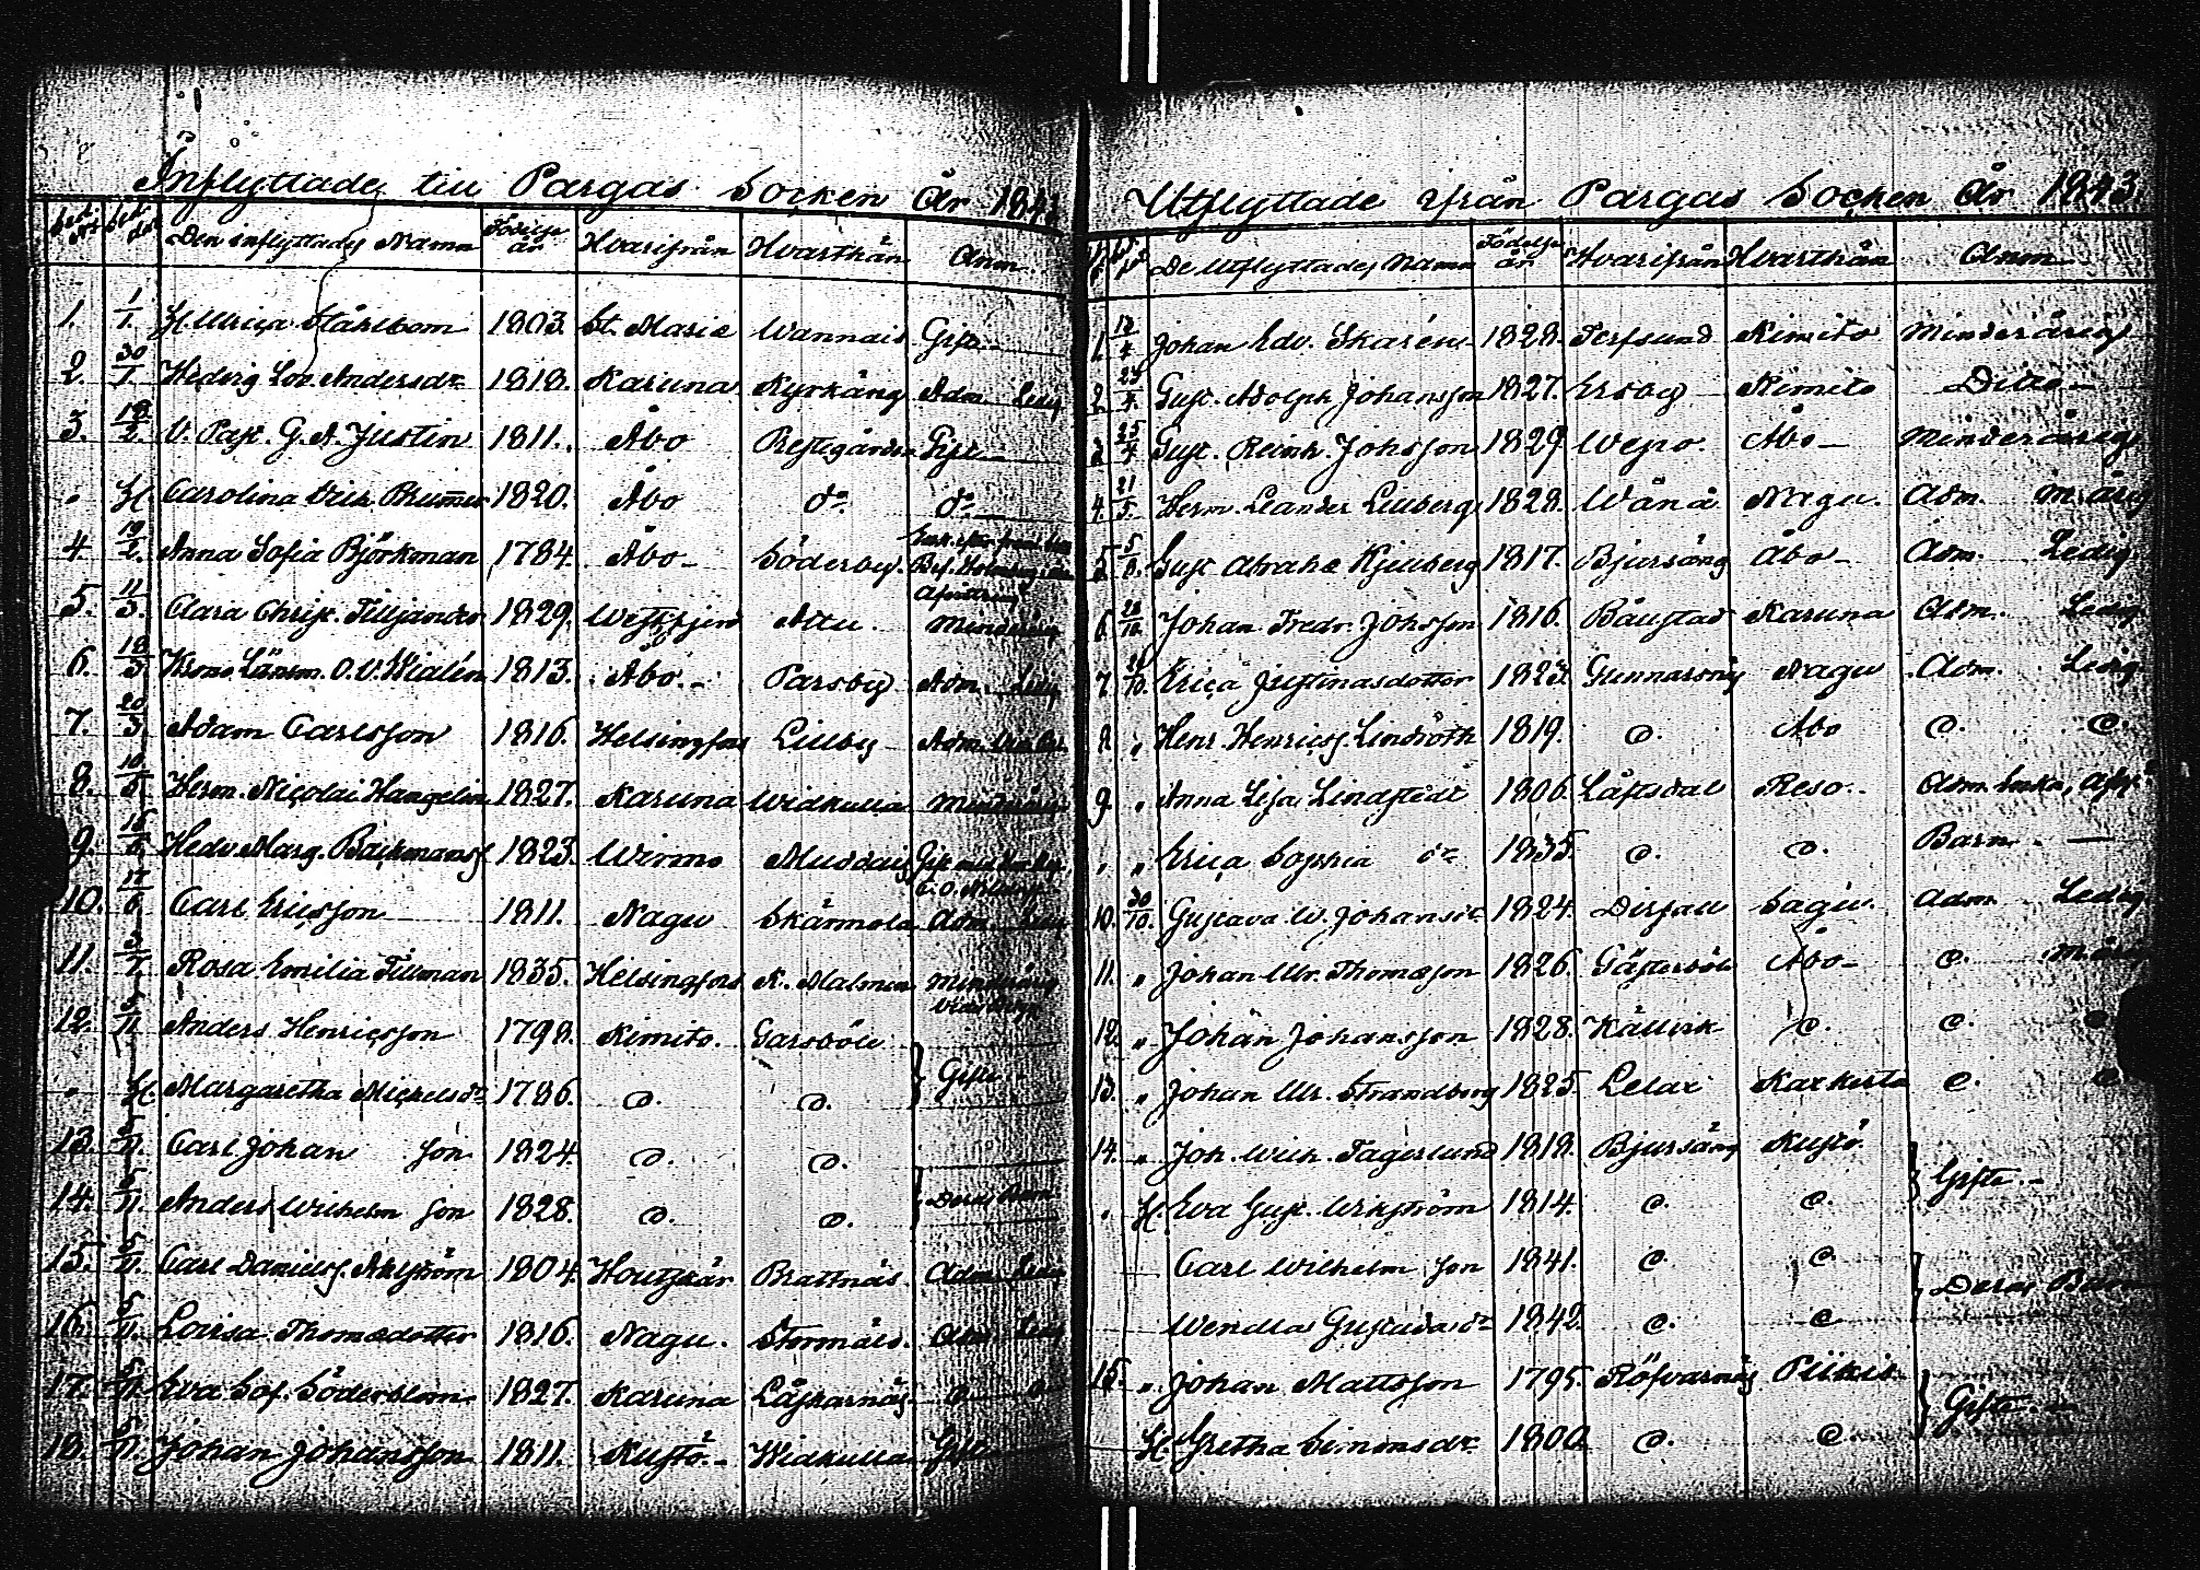 Inflyttade till Pargas Socken År 1843
Den inflyttades Namn Födelse år Hvarifrån Hvarthän Anm.
1. 1/1. H. Ulrica Ståhlbom 1803. St. Marie Wannais Gift
2. 30/1. Hedvig Lov. Andersdr 1818. Karuna Kyrkäng Adm. Ledig
3. 18/2. V. Past. G. A. Justin 1811. Åbo Prestgården Gift
" H. Carolina Brummer 1820. Åbo do do
4. 19/2. Anna Sofia Björkman 1784. Åbo Söderby
5. 11/3. Clara Christ. Tilljander 1829. Attu. Minderårig
6. 18/3. Krono Länsm. O. V. Wialén 1813. Åbo. Parsby Adm. Ledig
7. 20/3. Adam Carlsson 1816. Helsingfors Lillby Adm.
8. 10/5. Herm. Nicolai Hangelin 1827. Karuna Widkulla Minderårig
9. Hedv. Marg. 1823. Wirmo Muddais
10. 17/6. Carl Ericsson 1811. Nagu Skärmola Adm. Ledig
11. Rosa Emilia Tillman 1835. Helsingfors K. Malmen Minderårig
12. 5/11. Anders Henricsson 1798. Kimito. Garsböle
" H. Margaretha Michelsdr 1786. d. d. } Gifte
13. 5/11. Carl Johan son 1824. d. d.
14. 5/11. Anders Wilhelm son 1828. d. d. } Deras Barn
15. 5/11. Carl Daniels. Akström 1804. Houtskär Brattnäs. Adm. Ledig
16. 5/11. Lovisa Thomædotter 1816. Nagu. Stormälö. Adm. Ledig
17. 5/11. Eva Sof. Söderblom 1827. Karuna
18. 5/11. Johan Johansson 1811. Kustö. Widkulla Gift
Utflyttade ifrån Pargas Socken År 1843.
De Utflyttades Namn Födelse år Hvarifrån Hvarthän Anm.
1. 12/4 Johan Edv. Skarén 1828. Terfsund Kimito Minderårig
2. 23/4. Gust. Adolph Johansson 1827. Ersby Kimito Ditto
3. 25/4 Gust. Reinh. Johsson 1829 Wepo. Åbo Minderårig
4. 21/5. Herm. Leander Lillberg 1828. Wånå Nagu. Adm. M. årig
5. Gust Abrah. Kjellberg 1817. Bjursäng Åbo Adm. Ledig
6. Johan Fredr. Johsson 1816. Båustad Karuna Adm. Ledig
7. Erica Justinasdotter 1823. Gunnarsnäs Nagu Adm. Ledig
8. " Henr. Henrics. Lindroth 1819. d. Åbo d. d.
9. " Anna Lisa Lindstedt 1806. Låftsdal Reso. Adm. Enka,
" " Erica Sophia dr 1835. d. d. Barn.
10. 30/10. Gustava W. Johansdr 1824. Dersall Sagu. Adm. Ledig
11. " Johan Ulr. Thomasson 1826. Gästerböle Åbo d. M. årig
12. " Johan Johansson 1828. Källvik d. d.
13. " Johan Ulr. Strandberg 1825. Lelax Karkerta d. d.
14. " Joh. Wilh. Fagerlund 1818. Bjursäng Kustö.
" H. Eva Gust. Wikström 1814. d. d. } Gifte.
Carl Wilhelm son 1841. d. d.
Wendla Gustava dr 1842. d. d. } Deras Barn
15. " Johan Mattsson 1795. Röfvarnäs Piikis
H. Gretha Simonsdr 1800 d. d. } Gifte.